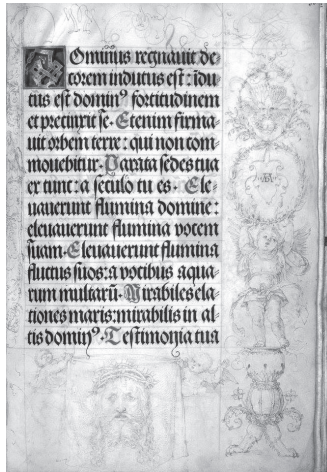 Dominus regnauit de⸗
corem indutus est : idu
tus est dominꝰ fortitudinem
et precinxit se. Etenim firma⸗
uit orbem terre : qui non com⸗
mouebitur. Parata sedes tua
ex tunc : a seculo tu es. Ele⸗
uauerunt flumina domine :
eleuauerunt flumina vocem
suam. Eleuauerunt flumina
fluctus suos : a vocibus aqua⸗
rum multarū. Mirabiles ela⸗
tiones maris : mirabilis in al⸗
tis dominꝰ. Testimonia tua